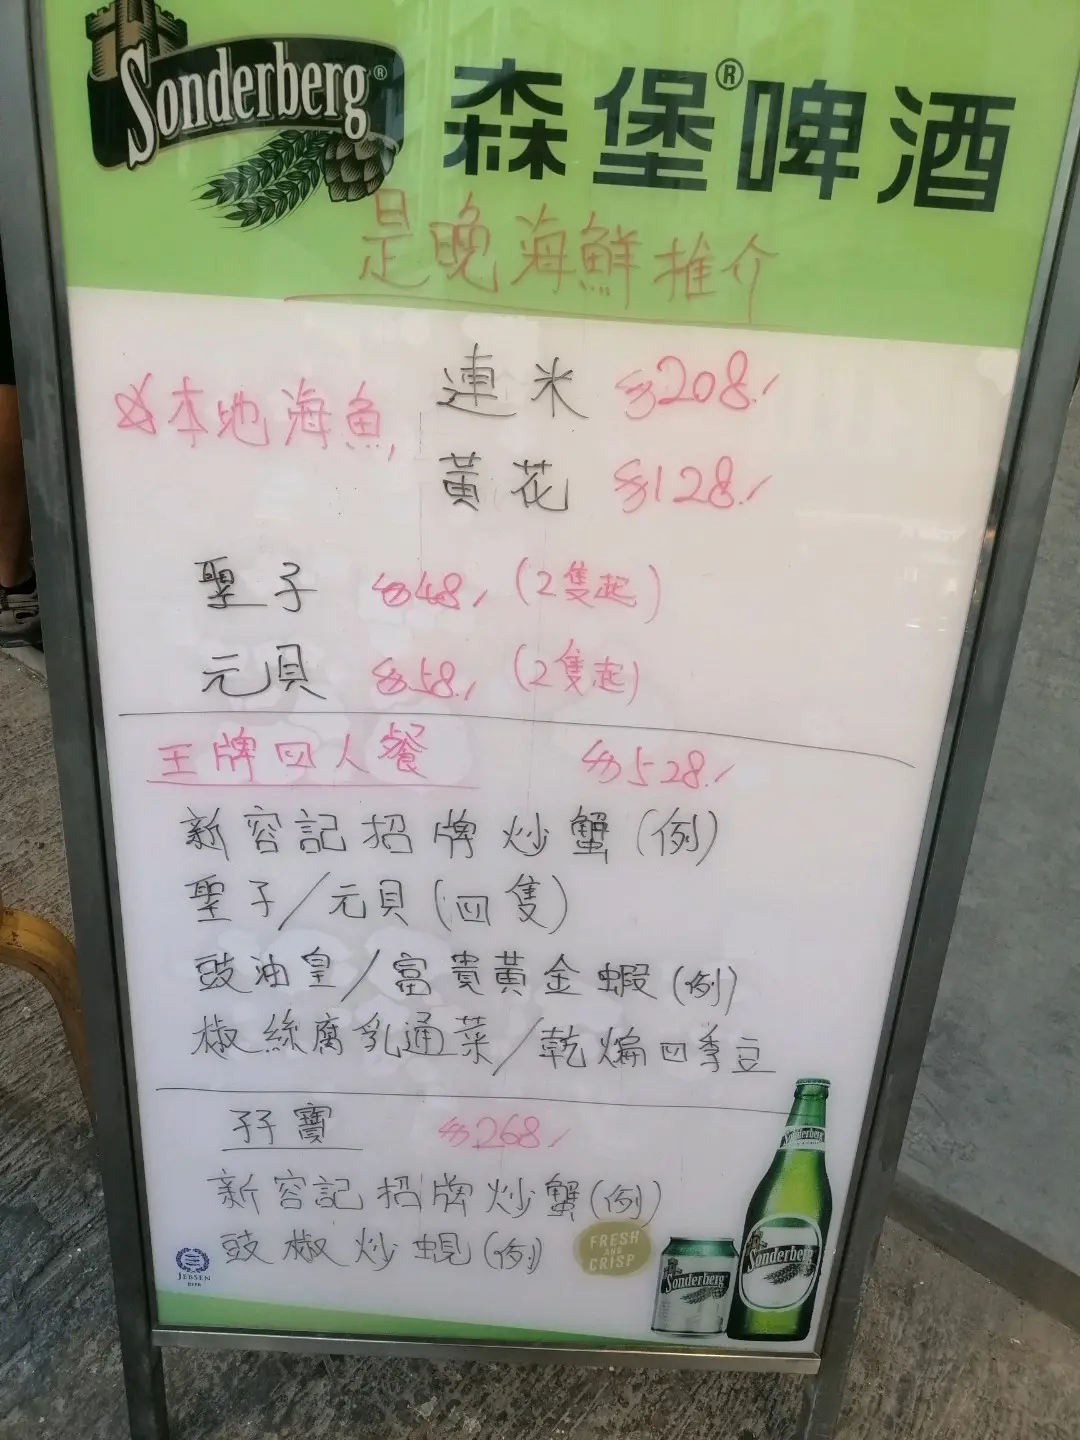 Sonderberg® 森堡®啤酒
是晚海鮮推介
本地海魚, 連米 $208./
黃花 $128./
聖子 $48/ (2隻起)
元貝 $58/ (2隻起)
王牌四人餐 $528/
新容記招牌炒蟹(例)
聖子/元貝(四隻)
豉油皇/富貴黃金蝦(例)
椒絲腐乳通菜/乾煸四季豆
孖寶 $268/
新容記招牌炒蟹(例)
豉椒炒蜆(例)
FRESH
AND
CRISP
JEBSEN
BEER
Sonderberg
Sonderberg
Sonderberg